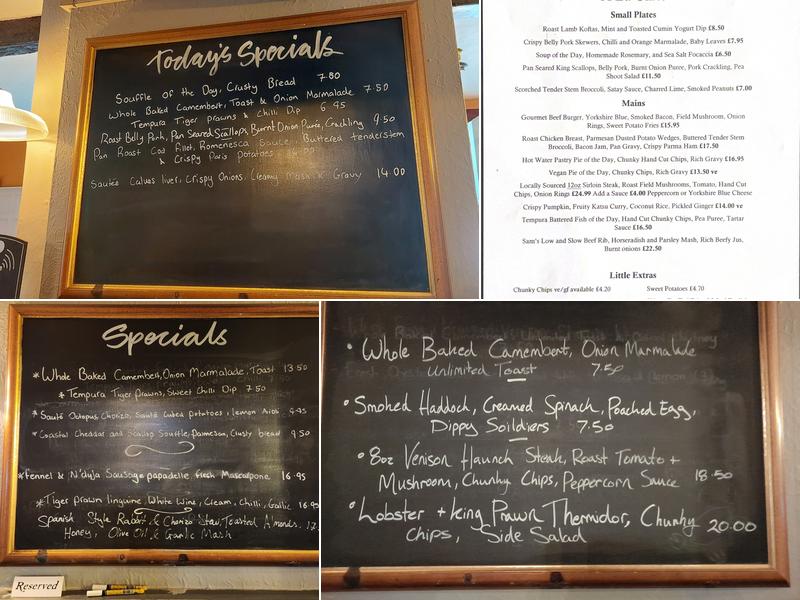 Today's Specials
Souffle of the Day, Crusty Bread 7.80
Whole Baked Camembert, Toast & Onion Marmalade 7.50
Tempura Tiger prawns & Chilli Dip 6.95
Roast Belly Pork, Pan Seared Scallops, Burnt Onion Purée, Crackling 9.50
Pan Roast Cod Fillet, Romenesca Sauce, Buttered tenderstem
& Crispy Paris potatoes
Sautéed Calves liver, Crispy Onions, Creamy Mash & Gravy 14.00
Small Plates
Roast Lamb Koftas, Mint and Toasted Cumin Yogurt Dip £8.50
Crispy Belly Pork Skewers, Chilli and Orange Marmalade, Baby Leaves £7.95
Soup of the Day, Homemade Rosemary, and Sea Salt Focaccia £6.50
Pan Seared King Scallops, Belly Pork, Burnt Onion Puree, Pork Crackling, Pea
Shoot Salad £11.50
Scorched Tender Stem Broccoli, Satay Sauce, Charred Lime, Smoked Peanuts £7.00
Mains
Gourmet Beef Burger, Yorkshire Blue, Smoked Bacon, Field Mushroom, Onion
Rings, Sweet Potato Fries £15.95
Roast Chicken Breast, Parmesan Dusted Potato Wedges, Buttered Tender Stem
Broccoli, Bacon Jam, Pan Gravy, Crispy Parma Ham £17.50
Hot Water Pastry Pie of the Day, Chunky Hand Cut Chips, Rich Gravy £16.95
Vegan Pie of the Day, Chunky Chips, Rich Gravy £13.50 ve
Locally Sourced 12oz Sirloin Steak, Roast Field Mushrooms, Tomato, Hand Cut
Chips, Onion Rings £24.99 Add a Sauce £4.00 Peppercorn or Yorkshire Blue Cheese
Crispy Pumpkin, Fruity Katsu Curry, Coconut Rice, Pickled Ginger £14.00 ve
Tempura Battered Fish of the Day, Hand Cut Chunky Chips, Pea Puree, Tartar
Sauce £16.50
Sam's Low and Slow Beef Rib, Horseradish and Parsley Mash, Rich Beefy Jus,
Burnt onions £22.50
Little Extras
Chunky Chips ve/gf available £4.20 Sweet Potatoes £4.70
Specials
* Whole Baked Camembert, Onion Marmalade, Toast 13.50
* Tempura Tiger Prawns, Sweet Chilli Dip 7.50
* Sauté Octopus, Chorizo, Sauté Cubed potatoes, lemon Aioli 9.95
* Coastal Cheddar and Scallop Souffle, Parmesan, Crusty bread 9.50
* Fennel & N'duja Sausage papadelle, fresh Mascarpone 16.95
* Tiger prawn linguine, White Wine, Cream, Chilli, Garlic 16.95
Spanish Style Rabbit & Chorizo Stew, Toasted Almonds,
Honey, Olive Oil & Garlic Mash
Reserved
• Whole Baked Camembert, Onion Marmalade
Unlimited Toast 7.50
• Smoked Haddock, Creamed Spinach, Poached Egg,
Dippy Soildiers 7.50
• 8oz Venison Haunch Steak, Roast Tomato +
Mushroom, Chunky Chips, Peppercorn Sauce 18.50
• Lobster + King Prawn Thermidor, Chunky
Chips, Side Salad 20.00